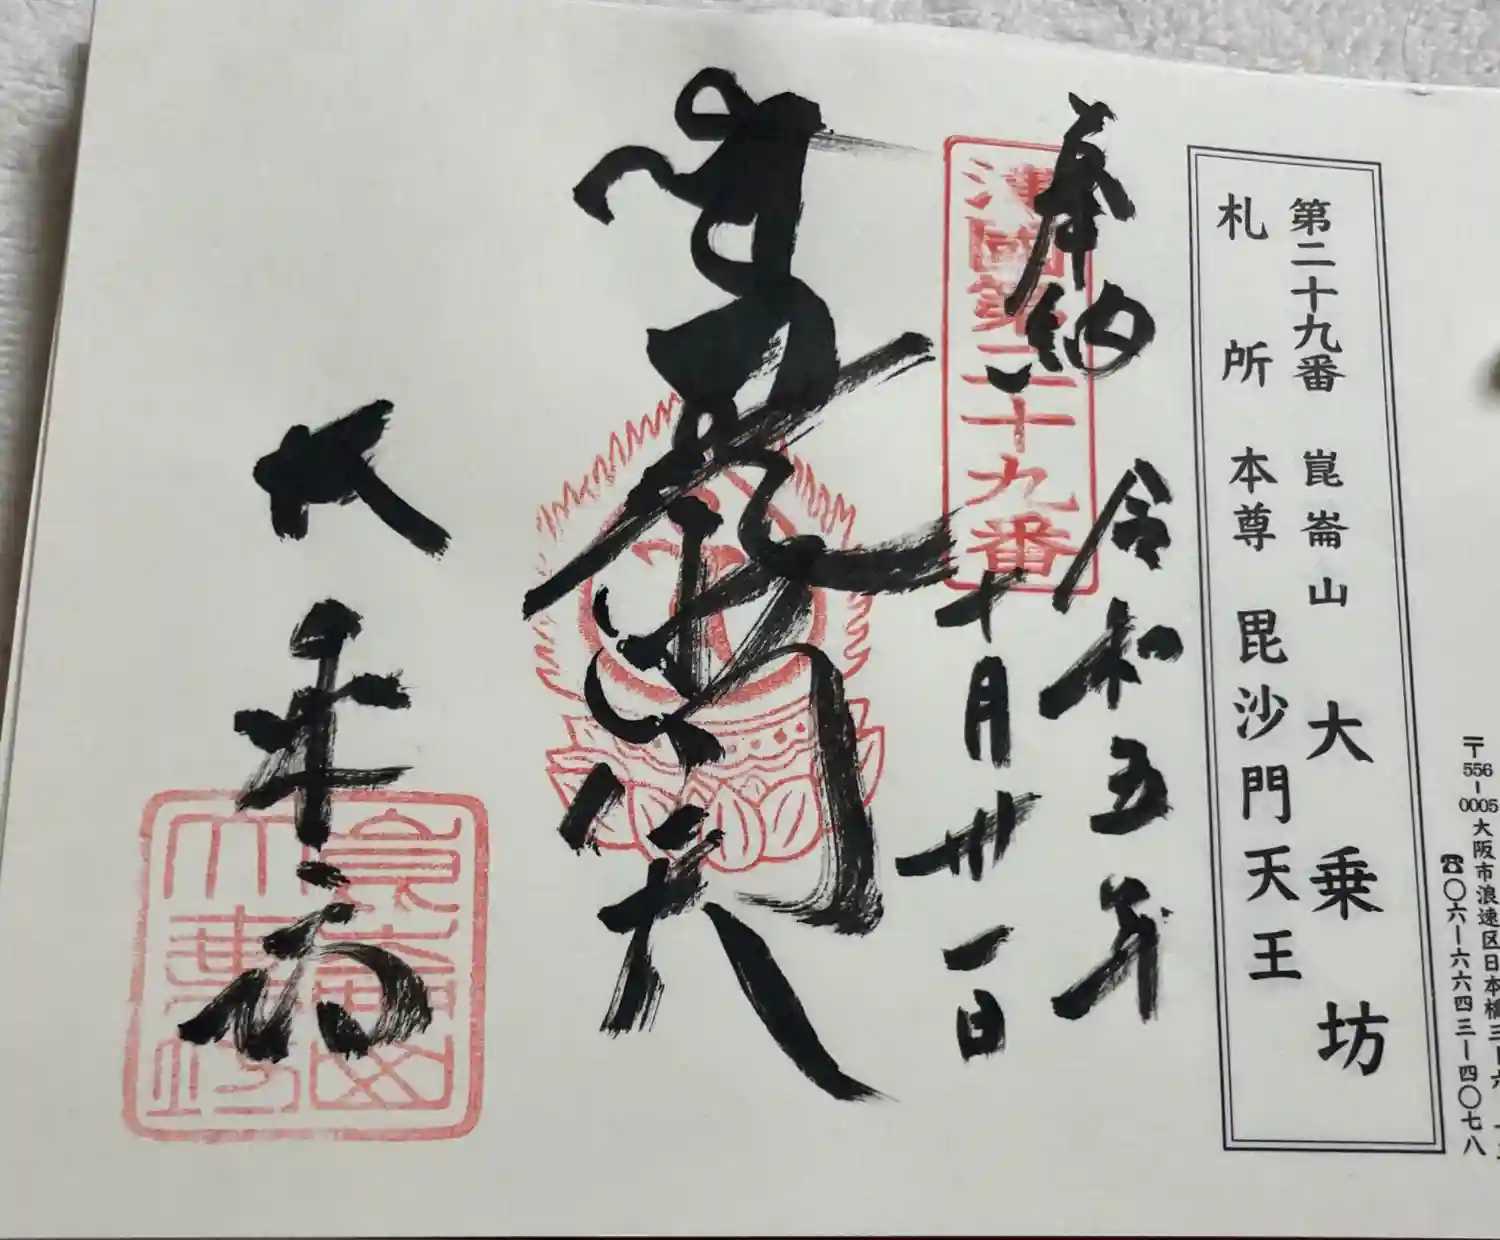 〒556-0005大阪市浪速区日本橋三-六-
☎〇六-六六四三-四〇七八
第二十九番 崑崙山 大乗坊
札所本尊 毘沙門天王
奉納
令和五年
十月卅一日
國第二十九番
毘沙門天
大乗坊